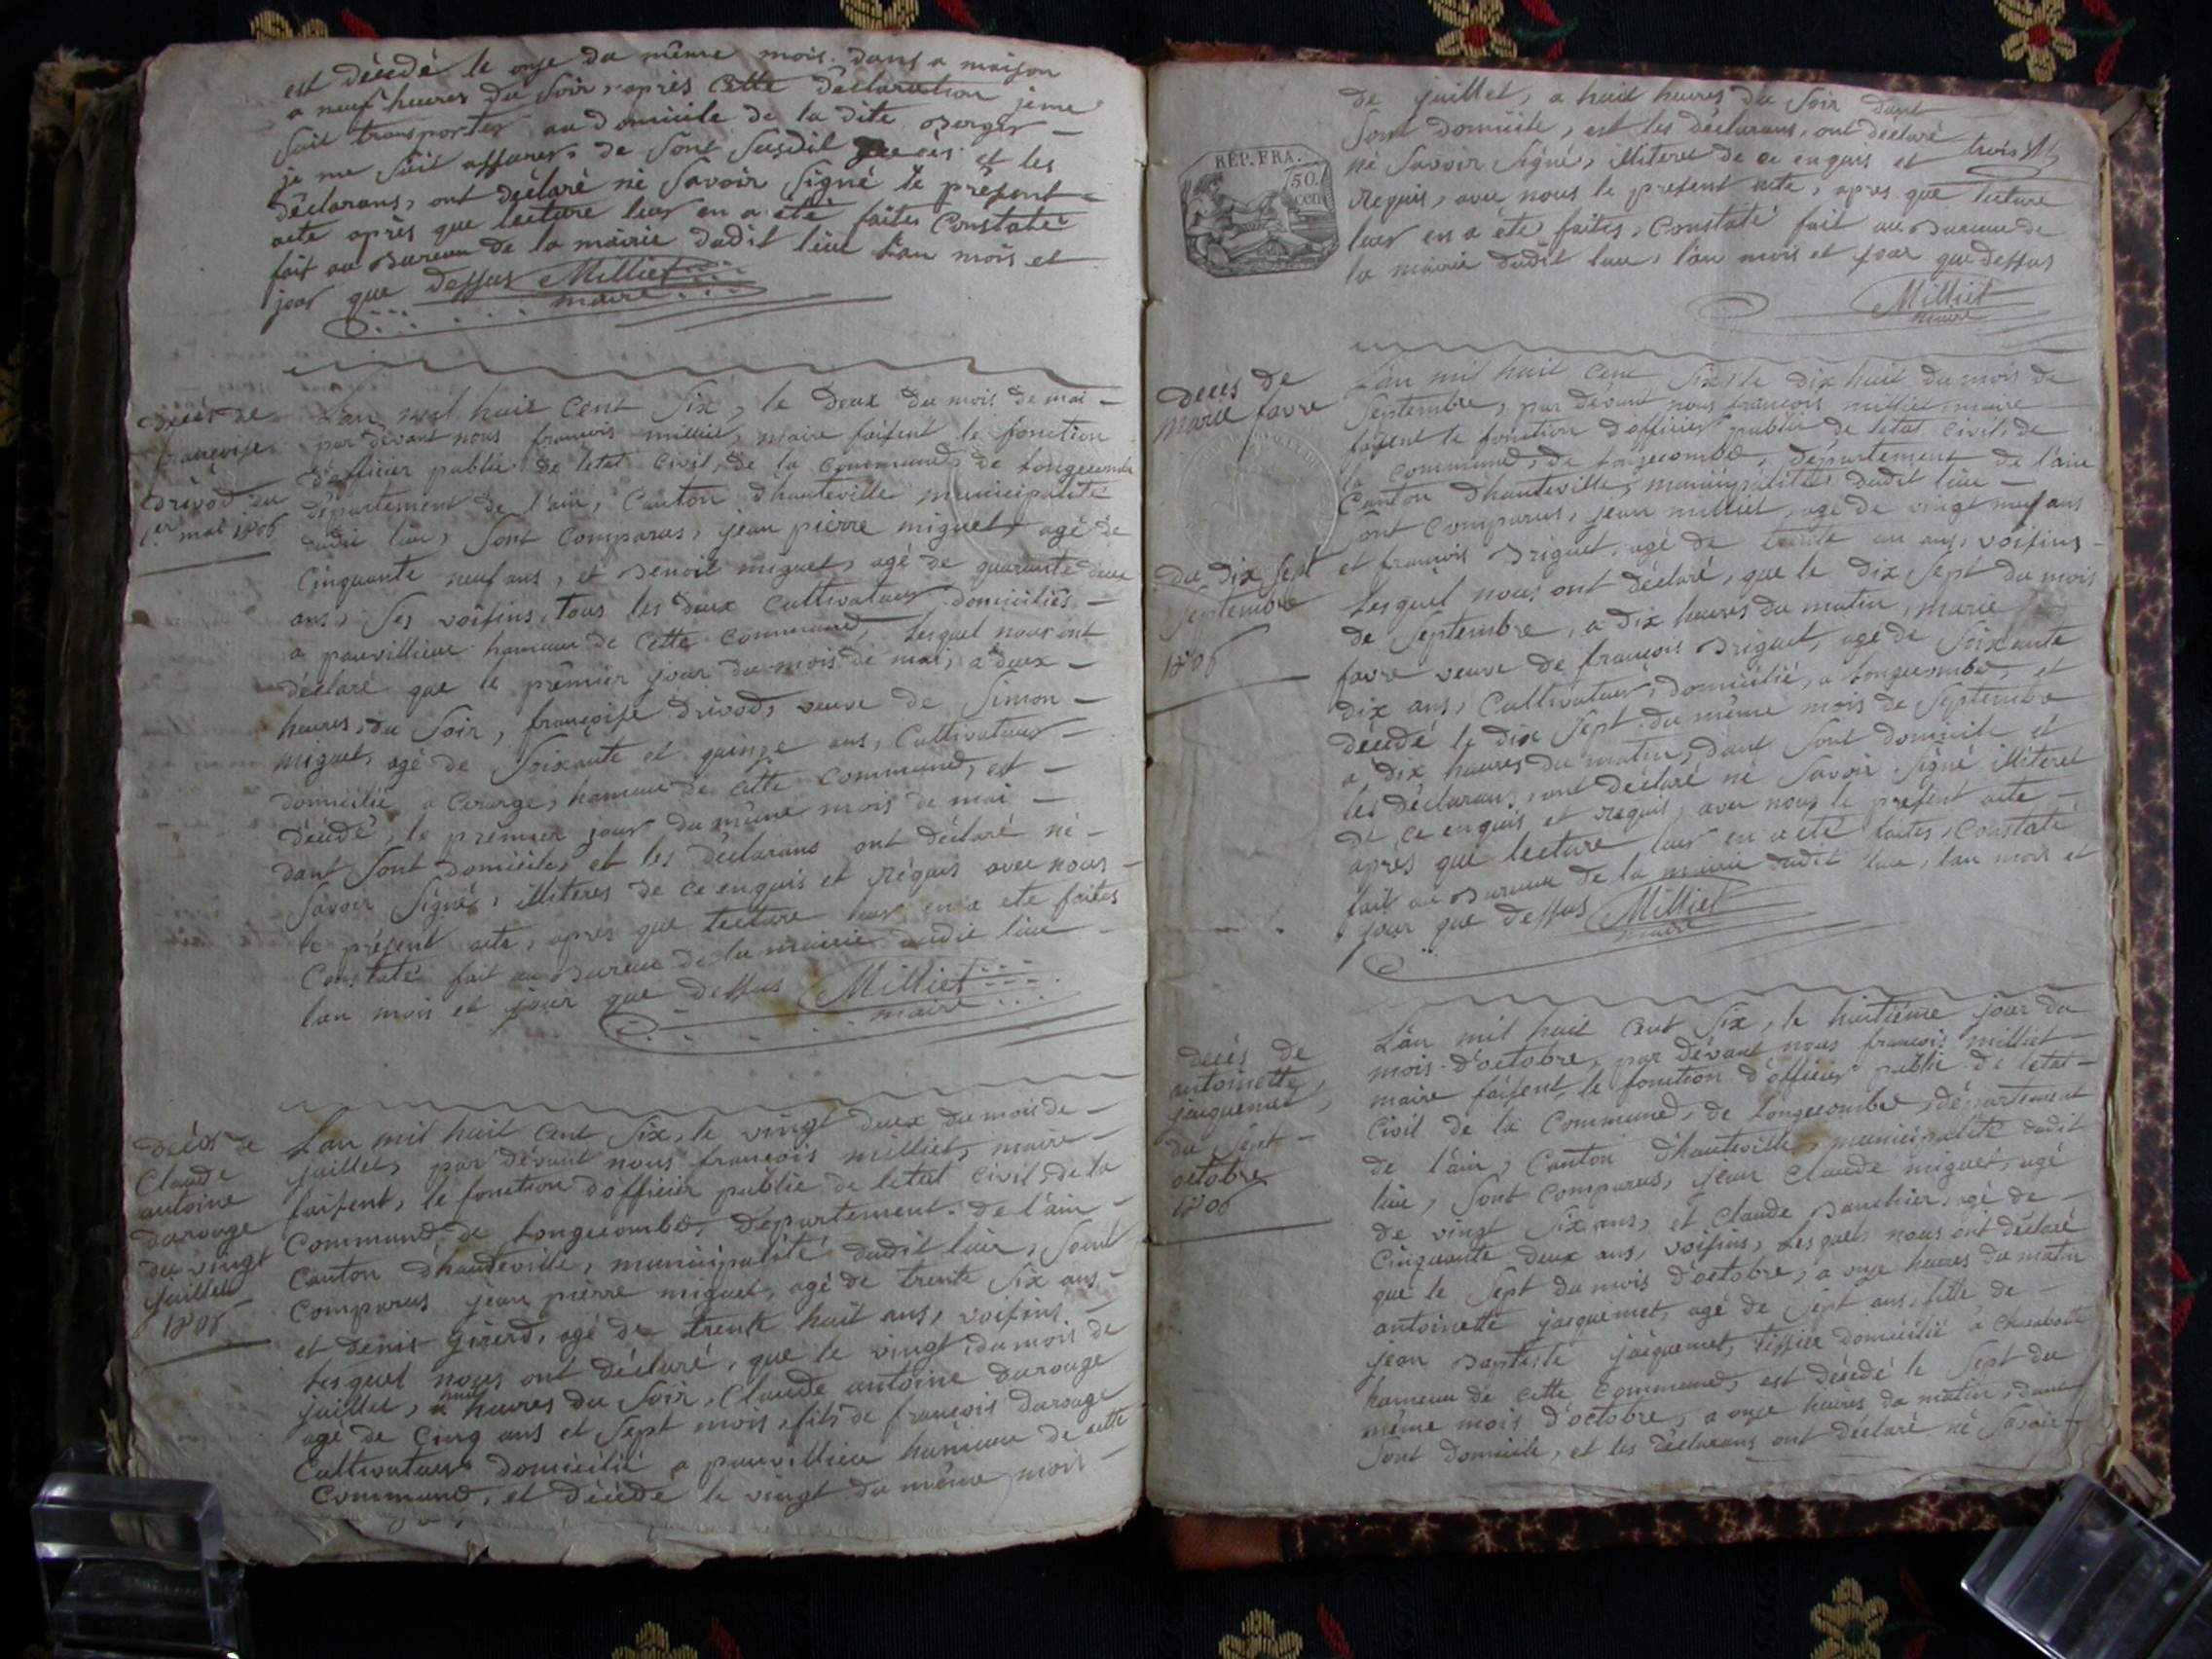 est décédé le onze du même mois. dans a maison
a neuf heures du soir, après cette déclaration je me
suit transportes au domicile de la dite Berger –
je me suit assurer, de sont susdit decès et les
déclarans, ont déclaré né savoir signé le présent –
acte après que lecture leur en a été faites Constaté
fait au Bureau de la mairie dudit lieu l'an mois et
jour que dessus Milliet
maire
décès de
françoise
drivod du
1er mai 1806
L'an mil huit Cent six, le deux du mois de mai –
par dévant nous francois milliet, maire faisent le fonction
d'officier publie de letat Civil, de la Commune, de Longecombe
département de l'ain, Canton d'hauteville municipalité
dudit lieu, sont Comparus, jean pierre miguet, agé de
Cinquante neuf ans, et Benoit miguet, agé de quarante deux
ans, ses voisins, tous les deux Cultivateur domiciliés –
a pauvillieu hameau de Cette Commune, lesquel nous ont
déclaré que le prémier jour du mois de mai, a deux –
heures, du soir, françoise drivod, veuve de Simon –
miguet, agé de soixante et quinze ans, Cultivateur –
domicilié a Cerarge, hameau de cette Commune, est –
décédé, le prémier jour du même mois de mai –
dant sont domicile, et les déclarans ont déclaré né –
savoir signé, illiteres de ce enquis et réquis avec nous –
le présent acte, apres que lecture leur en a ete faites
Constaté fait au Bureau de la mairie dudit lieu –
l'an mois et jour que dessus Milliet
maire
décès de
Claude
antoine
durouge
du vingt
juillet
1806
L'an mil huit Cent six, le vingt deux du mois de –
juillet, par dévant nous francois milliet, maire –
faisent, le fonction d'officier publie de letat Civil, de la
Commune de Longecombe, département de l'ain –
Canton d'hauteville, municipalité dudit lieu, sont
Comparus jean pierre miguet, agé de trente six ans –
et denis girerd, agé de trente huit ans, voisins –
lesquel nous ont déclaré, que le vingt du mois de
juillet, a huit heures du soir, Claude antoine durouge
agé de Cinq ans et sept mois, fils de francois durouge
Cultivateur domicilié a pauvillieu hameau de cette
Commune, et décéde le vingt du même mois –
de juillet, a huit heures du soir dant
sont domicile, est les déclarans, ont déclaré
né savoir signé, illiteret de ce enquis et
requis, avec nous le present acte, apres que lecture
leur en a été faites, Constaté fait au Bureau de
la mairie dudit lieu, l'an mois et jour que dessus
Milliet
maire
trois
RÉP. FRA.
50.
cen
decès de
marie favre
du dix sept
septembre
1806
L'an mil huit Cent six, le dix huit du mois de
septembre, par dévant nous francois milliet maire
faisent le fonction d'officier publie de letat Civil, de
la Commune, de Longecombe, département de l'ain
Canton d'hauteville, municipalité, dudit lieu –
sont Comparus, jean milliet, agé de vingt neuf ans
et francois Briguet, agé de trente un ans, voisins –
lesquel nous ont déclaré, que le dix sept du mois
de septembre, a dix heures du matin, marie
favre veuve de francois Briguet, agé de soixante
dix ans, Cultivateur, domicilié, a Longecombe, et
décédé le dix sept du même mois de septembre
a dix heures du matin, dant sont domicile et
les déclarans, ont déclaré né savoir signé illiteret
de ce enquis et requis, avec nous le présent acte –
apres que lecture leur en a eté faites, Constaté
fait au Bureau de la mairie dudit lieu, l'an mois et
jour que dessus Milliet
maire
decés de
antoinette,
jacquemet,
du sept –
octobre
1806
L'an mil huit Cent six, le huitième jour du
mois d'octobre, par dévant nous francois milliet –
maire faisent, le fonction d'officier publie de letat –
Civil de la Commune, de Longecombe, département
de l'ain, Canton d'hauteville, municipalité dudit
lieu, sont Comparus, jean Claude miguet, agé
de vingt six ans, et Claude Banchier, agé de –
Cinquante deux ans, voisins, lesquels nous ont déclaré
que le sept du mois d'octobre, a onze heures du matin
antoinette jacquemet, agé de sept ans, fille de –
jean Baptiste jacquemet, tissier domicilié a
hameau de cette Commune, est décédé le sept du
même mois d'octobre, a onze heures du matin, dant
sont domicile, et les déclarans ont déclaré né savoir –